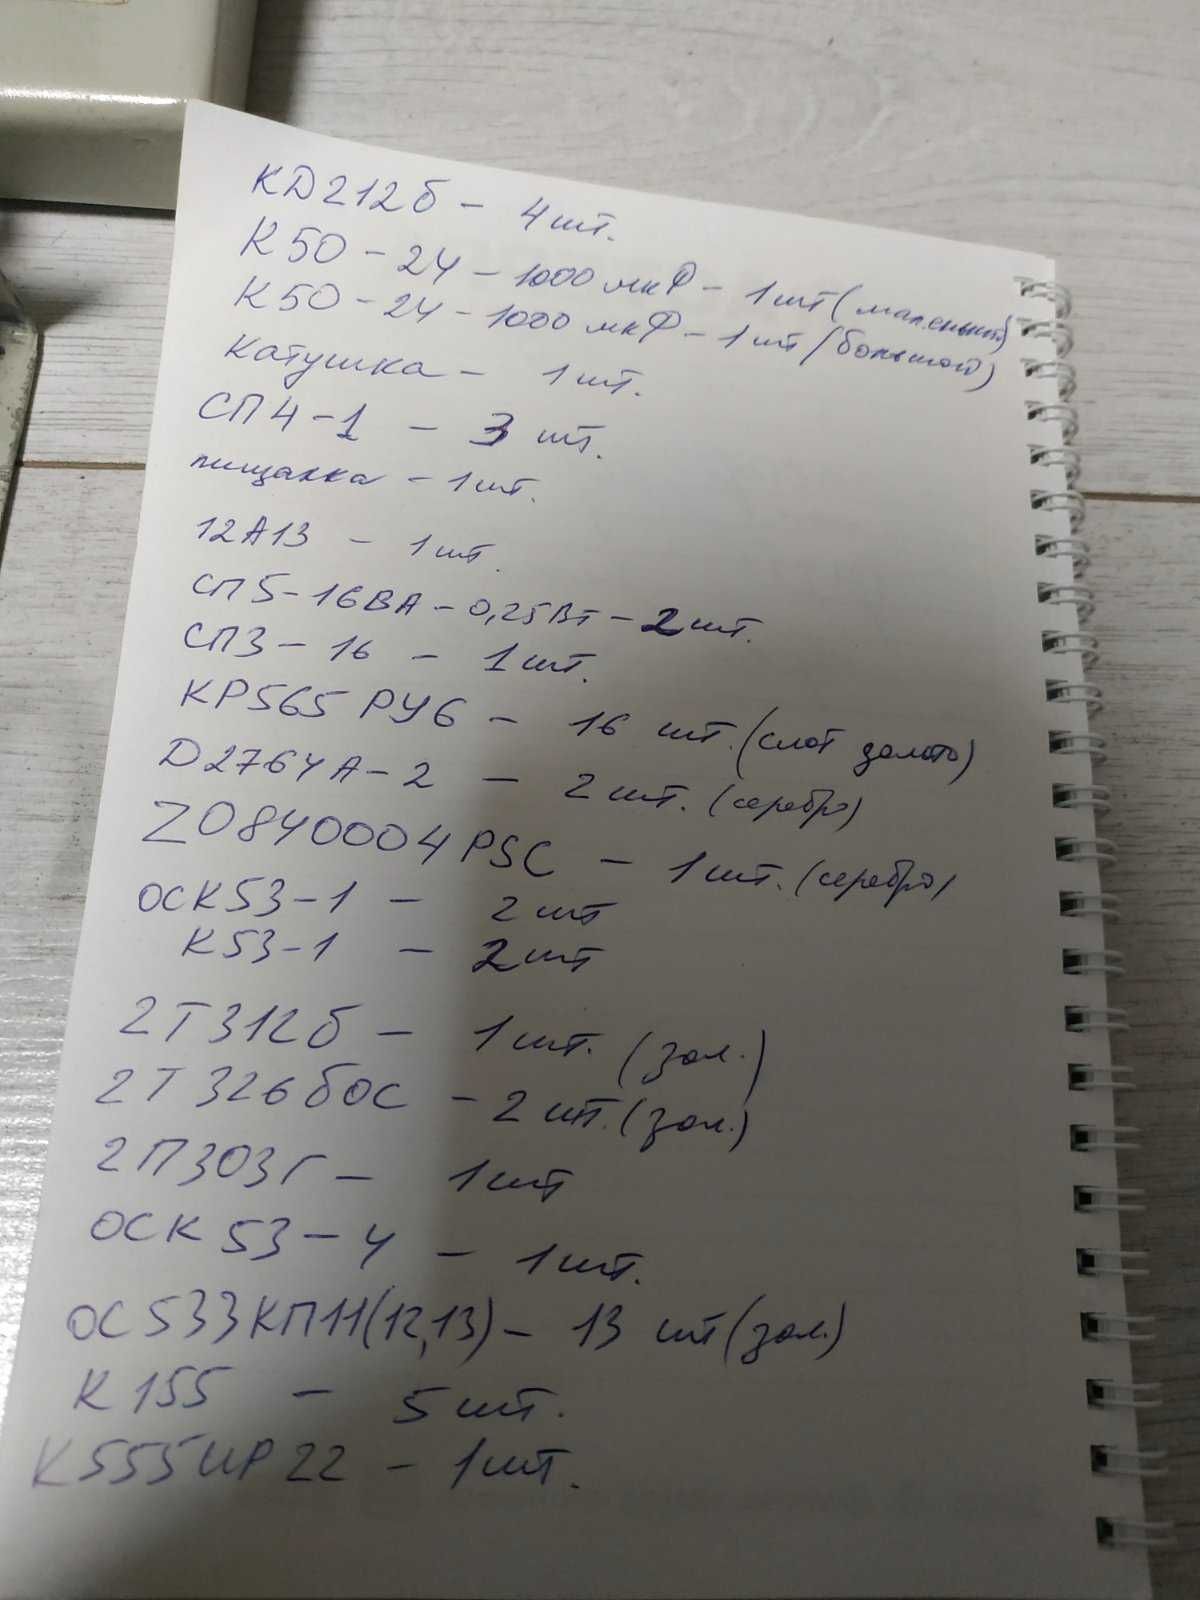 КД212б - 4 шт.
К50-24 - 1000 мкФ - 1 шт (маленький)
К50-24 - 1000 мкФ - 1 шт (большой)
катушка - 1 шт.
СП4-1 - 3 шт.
пищалка - 1 шт.
12А13 - 1 шт.
СП5-16ВА - 0,25Вт - 2 шт.
СП3-16 - 1 шт.
КР565РУ6 - 16 шт. (слот золото)
D2764A-2 - 2 шт. (серебро)
Z0840004PSC - 1 шт. (серебро)
ОСК53-1 - 2 шт
К53-1 - 2 шт
2Т312б - 1 шт. (зол.)
2Т326бОС - 2 шт. (зол.)
2П303Г - 1 шт
ОСК53-4 - 1 шт.
ОС533КП11(12,13) - 13 шт (зол.)
К155 - 5 шт.
К555ИР22 - 1 шт.